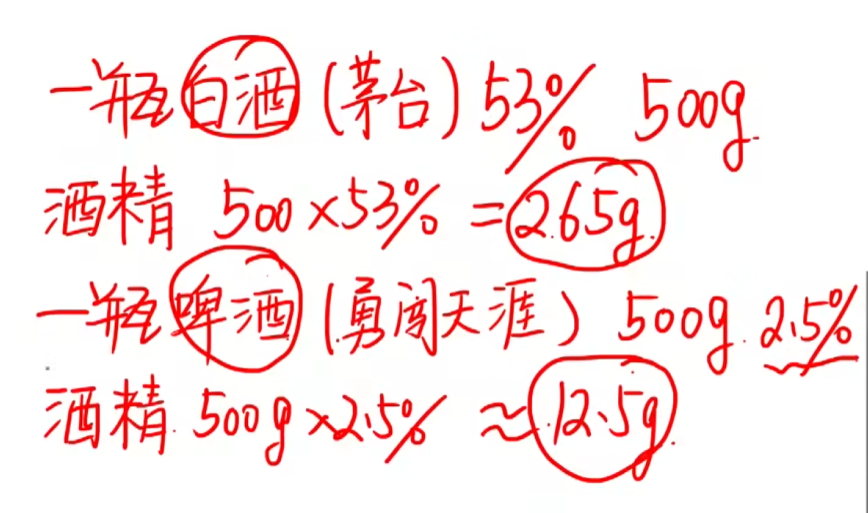 一瓶白酒(茅台)53% 500g.
酒精 500×53% =265g.
一瓶啤酒(勇闯天涯) 500g. 2.5%
酒精. 500g×2.5% ≈12.5g.